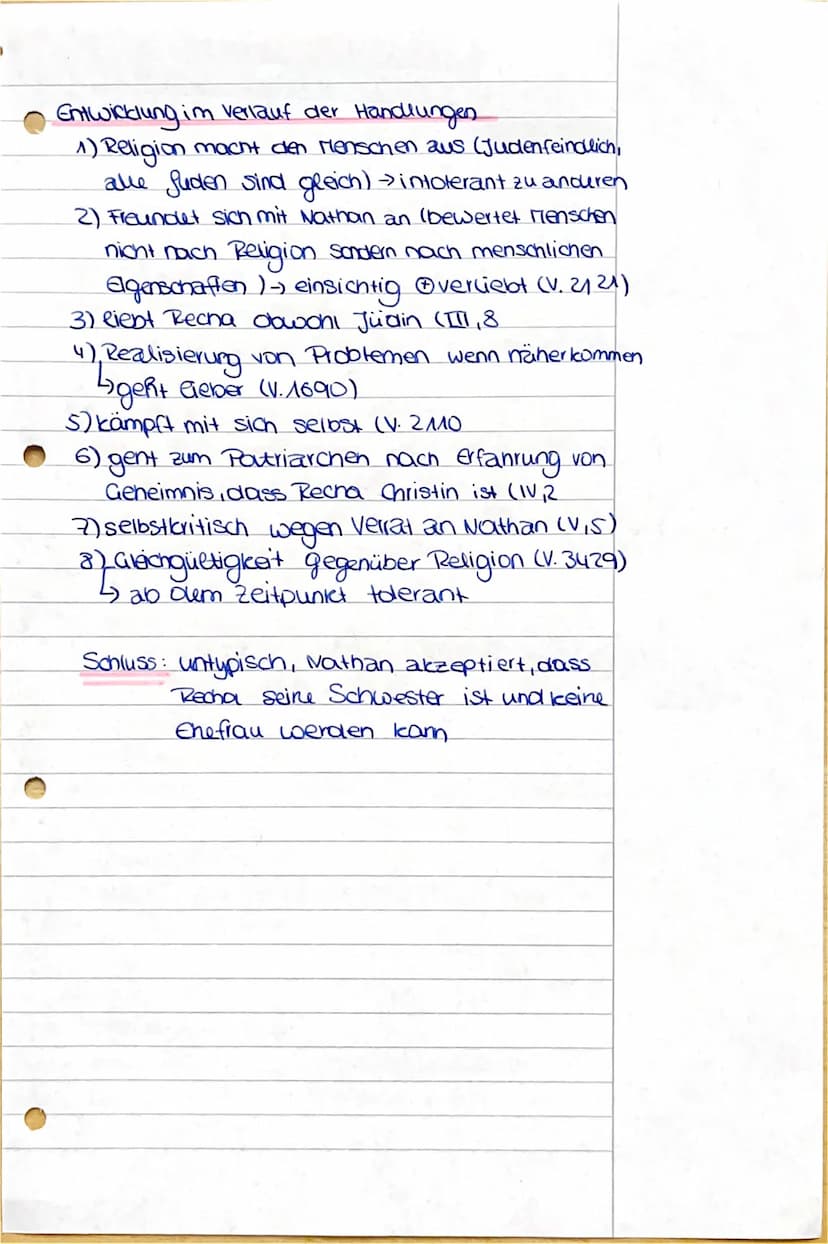 Entwicklung im Verlauf der Handlungen
1) Religion macht den Menschen aus (Judenfeindlich,
alle Juden sind gleich) → intolerant zu anderen
2) Freundet sich mit Nathan an (bewertet Menschen
nicht nach Religion sondern nach menschlichen
Eigenschaften ) → einsichtig ⊕ verliebt (V. 2121)
3) liebt Recha obwohl Jüdin (III,8
4) Realisierung von Problemen wenn näher kommen
↳ geht lieber (V.1690)
5) kämpft mit sich selbst (V. 2110
6) geht zum Patriarchen nach Erfahrung von
Geheimnis, dass Recha Christin ist (IV,2
7) selbstkritisch wegen Verrat an Nathan (V,5)
8) Gleichgültigkeit gegenüber Religion (V. 3429)
↳ ab dem Zeitpunkt tolerant
Schluss: untypisch, Nathan akzeptiert, dass
Recha seine Schwester ist und keine
Ehefrau werden kann